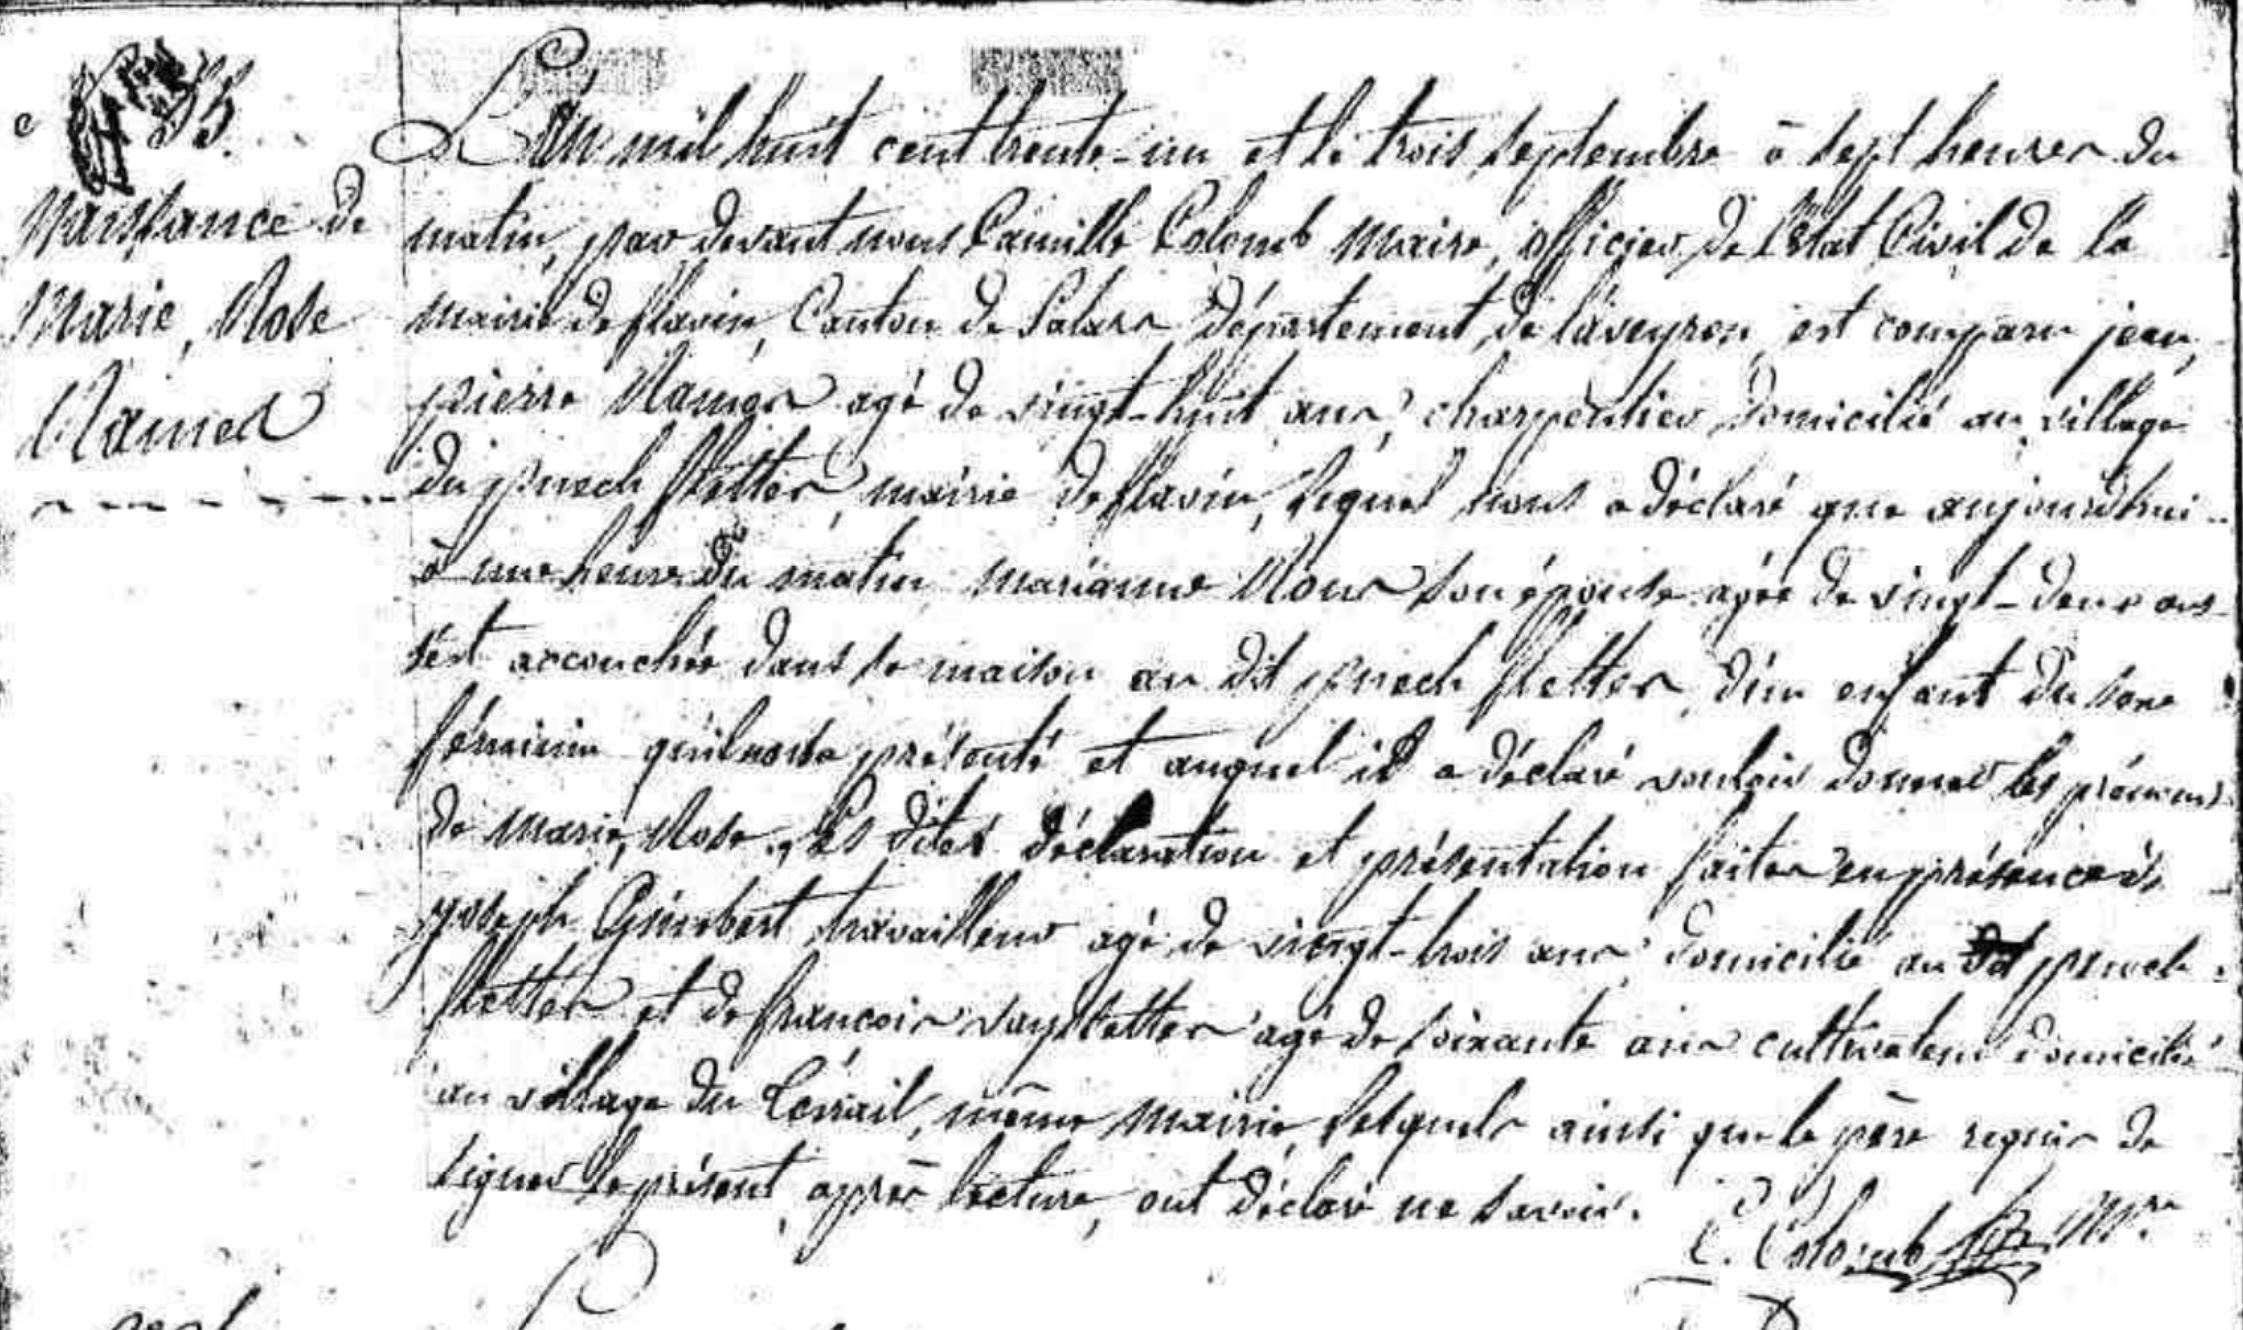 55.
Naissance de
Marie, Rose
L'an mil huit cent trente-un et le trois septembre à sept heures du
matin, par devant nous Camille Colomb maire, officier de l'état Civil de la
mairie de flavin, Canton de Salars département, de l'aveyron, est comparu jean,
pierre agé de vingt-huit ans, charpentier domicilié au village
du puech mairie de flavin, lequel nous a déclaré que aujourd'hui
à une heure du matin marianne son épouse agée de vingt-deux ans
s'est accouchée dans sa maison au dit puech d'un enfant du sexe
féminin qu'il nous a présenté et auquel il a déclaré vouloir donner les prénoms
de marie, Rose, les dites déclaration et présentation faites en présence de
joseph Guimbert travailleur agé de vingt-trois ans domicilié au dit puech
et de francois agé de soixante ans cultivateur domicilié
au village du même mairie, lesquels ainsi que le père requis de
signer le présent, après lecture, ont déclaré ne savoir.
C. Colomb Mre